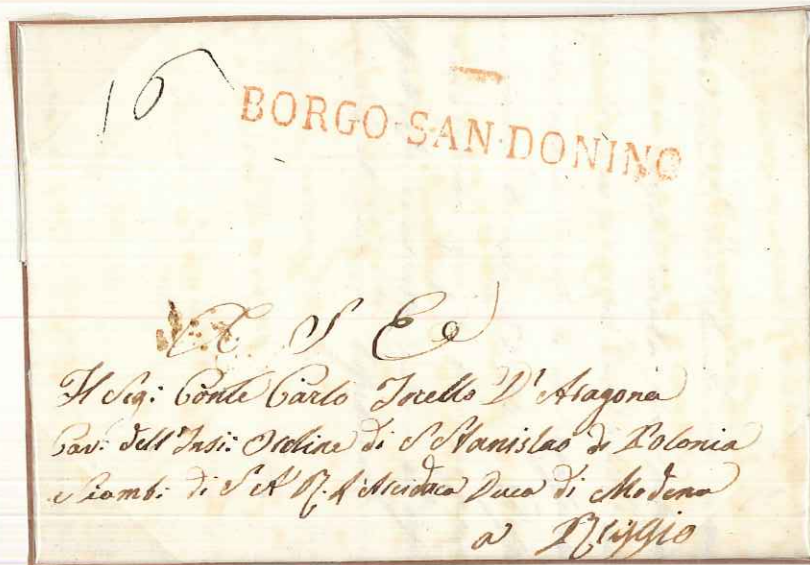 16
BORGO·SAN·DONINO
A S E
Il Sigr: Conte Carlo Torello D'Aragona
Cav: dell'Insi: Ordine di S Stanislao di Polonia
Ciamb: di S A R. l'Arciduca Duca di Modena
a Reggio